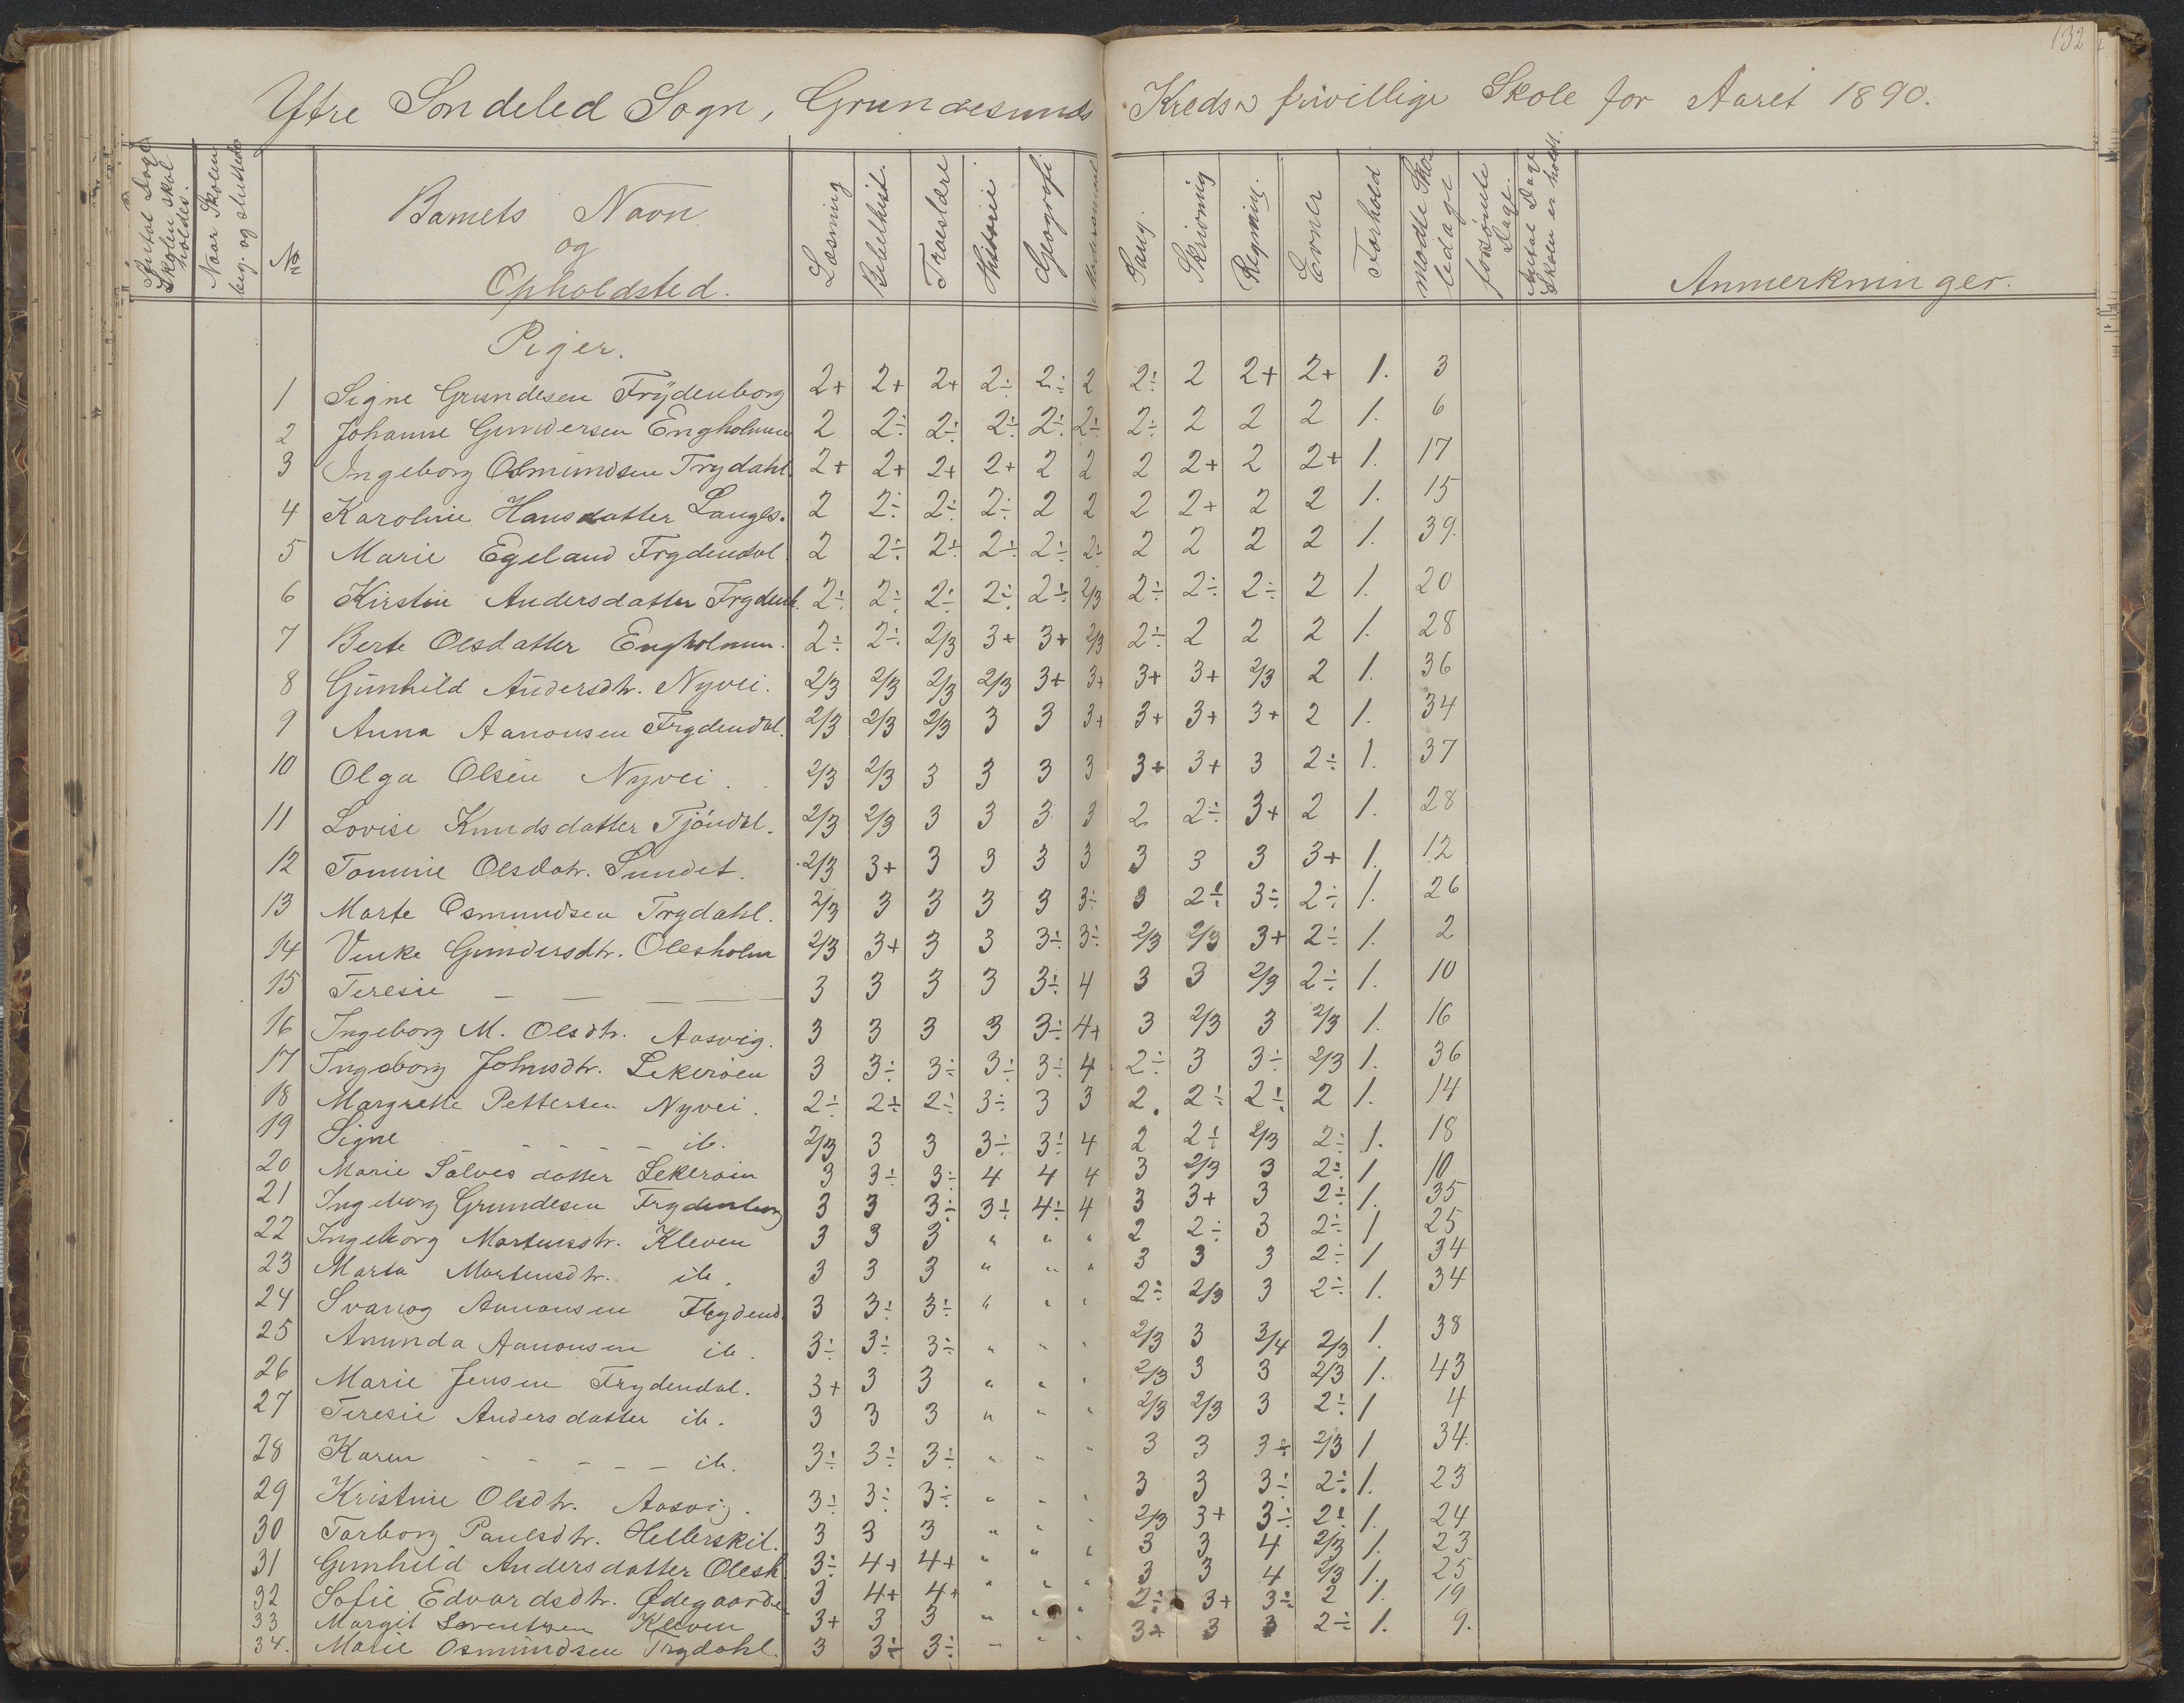 132
Ytre Søndeled Sogn, Grundesunds Kredses frivillige Skole for Aaret 1890.
Antal Dage Skolen skal holdes.
Naar Skolen beg. og sluttede
No
Barnets Navn og Opholdsted.
Læsning
Bibelhist.
Troeslære
Historie
Geografi
Modersmaal
Sang.
Skrivning
Regning.
Evner
Forhold
mødte Skoledage
forsømte Dage.
Antal Dage Skolen er holdt.
Anmerkninger.
Piger.
1 Signe Grundesen Frydenborg 2+ 2+ 2+ 2÷ 2÷ 2 2÷ 2 2+ 2+ 1. 3
2 Johanne Gundersen Engholmen 2 2÷ 2÷ 2÷ 2÷ 2÷ 2÷ 2 2 2 1. 6
3 Ingeborg Osmundsen Trydahl 2+ 2+ 2+ 2+ 2 2 2 2+ 2 2+ 1. 17
4 Karoline Hansdatter Laugls. 2 2÷ 2÷ 2÷ 2 2 2 2+ 2 2 1. 15
5 Marie Egeland Frydendal 2 2÷ 2÷ 2÷ 2÷ 2÷ 2 2 2 2 1. 39.
6 Kirstine Andersdatter Frydend. 2÷ 2÷ 2÷ 2÷ 2÷ 2/3 2÷ 2÷ 2÷ 2 1. 20
7 Berte Olsdatter Engholmen. 2÷ 2÷ 2/3 3+ 3+ 2/3 2÷ 2 2 2 1. 28
8 Gunhild Andersdtr. Nyvei. 2/3 2/3 2/3 2/3 3+ 3+ 3+ 3+ 2/3 2 1. 36
9 Anna Aanonsen Frydendal. 2/3 2/3 2/3 3 3 3+ 3+ 3+ 3+ 2 1. 34
10 Olga Olsen Nyvei. 2/3 2/3 3 3 3 3 3+ 3+ 3 2÷ 1. 37
11 Lovise Knudsdatter Tjøndal. 2/3 2/3 3 3 3 3 2 2÷ 3+ 2 1. 28
12 Tomine Olsdatr. Sundet. 2/3 3+ 3 3 3 3 3 3 3 3+ 1. 12
13 Marte Osmundsen Trydahl. 2/3 3 3 3 3 3÷ 3 2÷ 3÷ 2÷ 1. 26
14 Venke Gundersdtr. Olesholm 2/3 3+ 3 3 3÷ 3÷ 2/3 2/3 3+ 2÷ 1. 2
15 Teresie — — — — 3 3 3 3 3÷ 4 3 3 2/3 2÷ 1. 10
16 Ingeborg M. Olsdtr. Aasvig. 3 3 3 3 3÷ 4+ 3 2/3 3 2/3 1. 16
17 Ingeborg Johnsdtr. Lekerøen 3 3÷ 3÷ 3÷ 3÷ 4 2÷ 3 3÷ 2/3 1. 36
18 Margrethe Pettersen Nyvei. 2÷ 2÷ 2÷ 3÷ 3 3 2. 2÷ 2÷ 2 1. 14
19 Signe - - - - ib. 2/3 3 3 3÷ 3÷ 4 2 2÷ 2/3 2÷ 1. 18
20 Marie Salvesdatter Lekerøen 3 3÷ 3÷ 4 4 4 3 2/3 3 2÷ 1 10
21 Ingeborg Grundesen Frydenborg 3 3 3÷ 3÷ 4÷ 4 3 3+ 3 2÷ 1. 35
22 Ingeborg Mortensdtr. Kleven 3 3 3 " " " 2 2÷ 3 2÷ 1 25
23 Marta Mortensdtr. ib. 3 3 3 " " " 3 3 3 2÷ 1 34
24 Svanog Aanonsen Frydend. 3 3÷ 3÷ " " " 2÷ 2/3 3 2÷ 1. 34
25 Anunda Aanonsen ib. 3÷ 3÷ 3÷ " " " 2/3 3 3/4 2/3 1. 38
26 Marie Jensen Frydendal. 3+ 3 3 " " " 2/3 3 3 2/3 1. 43
27 Teresie Andersdatter ib. 3 3 3 " " " 2/3 2/3 3 2÷ 1 4
28 Karen - - - - - ib. 3÷ 3÷ 3÷ " " " 3 3 3÷ 2/3 1 34.
29 Kristine Olsdtr. Aasvig. 3÷ 3÷ 3÷ " " " 3 3 3÷ 2÷ 1. 23
30 Torborg Paulsdtr. Hellerskil. 3 3 3 " " " 2/3 3+ 3÷ 2÷ 1. 24
31 Gunhild Andersdatter Olesh. 3÷ 4+ 4+ " " " 3 3 4 2/3 1. 23
32 Sofie Edvardsdtr. Ødegaarde 3 4+ 4+ " " " 3 3 4 2/3 1. 25
33 Margit Sørentsen Kleven 3+ 3 3 " " " 2÷ 3+ 3÷ 2 1. 19
34. Marie Osmundsen Trydahl. 3 3÷ 3÷ " " " 3+ 3 3 2÷ 1. 9.